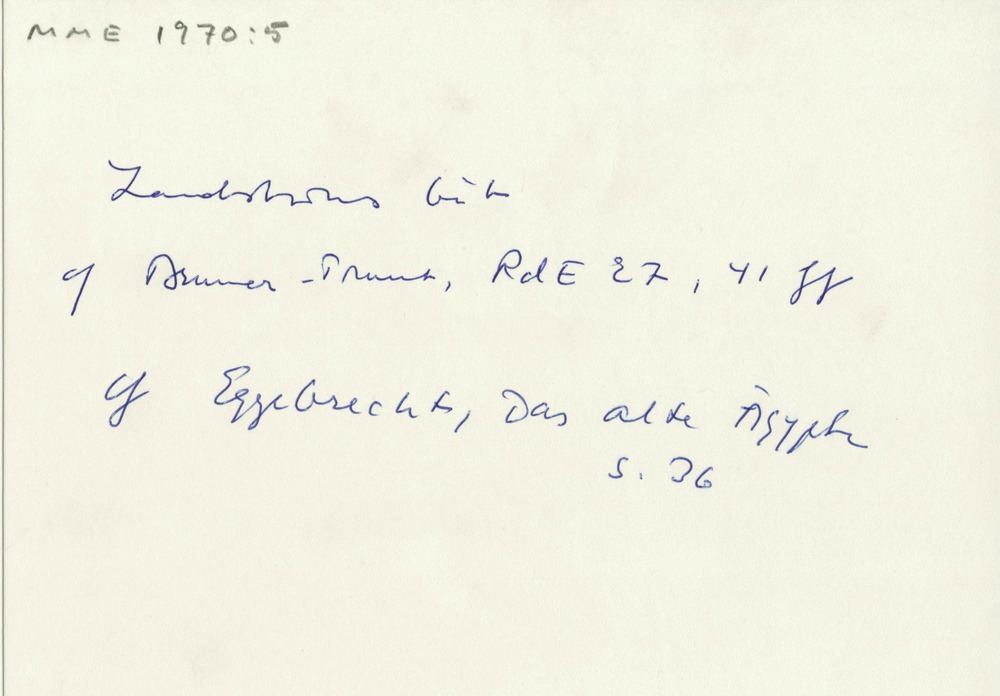 MME 1970:5
Landströms båt
cf Brunner-Traut, RdE 27, 41 ff
cf Eggebrecht, Das alte Ägypten
S. 36